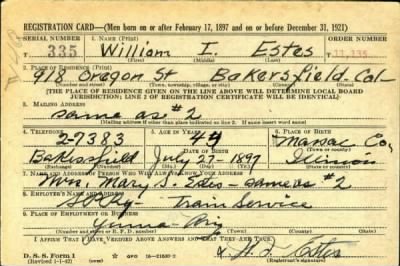 REGISTRATION CARD—(Men born on or after February 17, 1897 and on or before December 31, 1921)
SERIAL NUMBER 1. NAME (Print) ORDER NUMBER
335 William I. Estes 11,335
(First) (Middle) (Last)
2. PLACE OF RESIDENCE (Print)
918 Oregon St Bakersfield. Cal
(Number and street) (Town, township, village, or city) (County) (State)
[THE PLACE OF RESIDENCE GIVEN ON THE LINE ABOVE WILL DETERMINE LOCAL BOARD
JURISDICTION; LINE 2 OF REGISTRATION CERTIFICATE WILL BE IDENTICAL]
3. MAILING ADDRESS
same as #2
(Mailing address if other than place indicated on line 2. If same insert word same)
4. TELEPHONE 5. AGE IN YEARS 6. PLACE OF BIRTH
2-7383 44 Massac Co,
DATE OF BIRTH
Bakersfield July-27-1897 Illinois
7. NAME AND ADDRESS OF PERSON WHO WILL ALWAYS KNOW YOUR ADDRESS
Mrs. Mary S. Estes - same as #2
8. EMPLOYER'S NAME AND ADDRESS
SPRy - Train Service
9. PLACE OF EMPLOYMENT OR BUSINESS
Yuma - Ariz
I AFFIRM THAT I HAVE VERIFIED ABOVE ANSWERS AND THAT THEY ARE TRUE.
D. S. S. Form 1
(Revised 1-1-42) (over) GPO 16-21630-2
Estes